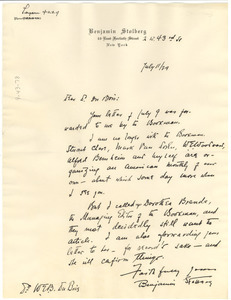 Benjamin Stolberg
New York
2 W. 43rd St
July 11/29
Dear Dr Du Bois:
Your letter of July 9 was for-
warded to me by the Bookman.
I am no longer with the Bookman.
Stuart Chase, Mark Van Doren,
Alfred Bernheim and myself are or-
ganizing an American monthly of our
own - about which some day more when
I see you.
But I called up Dorothea Brande,
the Managing Editor of the Bookman, and
they most decidedly want the
article. I am also forwarding your
letter to her - for record's sake - and
she will confirm things.
Faithfully yours
Benjamin Stolberg
Dr W.E.B. Du Bois